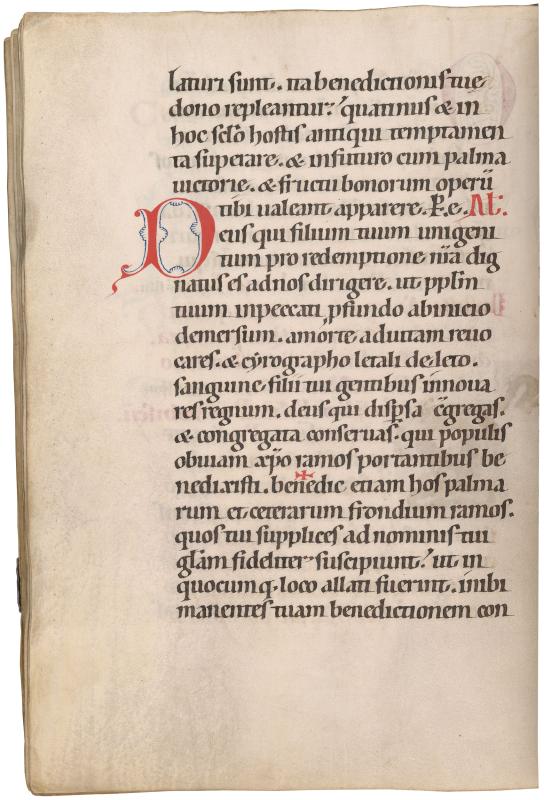 laturi sunt. ita benedictionis tue
dono repleantur: quatinus & in
hoc sclo hostis antiqui temptamen
ta superare. & in futuro cum palma
uictorie. & fructu bonorum operū
tibi ualeant apparere. P. e. Al:
Deus qui filium tuum unigeni
tum pro redemptione nr̄a dig
natus es ad nos dirigere. ut pplm̄
tuum inpeccati pfundo abinicio
demersum. amorte aduitam reuo
cares. & cyrographo letali deleto.
sanguine filii tui gentibus innoua
res regnum. deus qui dispsa c̄gregas.
& congregata conseruas. qui populis
obuiam xp̄o ramos portantibus be
nedixisti. bene✠dic etiam hos palma
rum et ceterarum frondium ramos.
quos tui supplices ad nominis tui
glām fideliter suscipiunt: ut in
quocumq. loco allati fuerint. inibi
manentes tuam benedictionem con